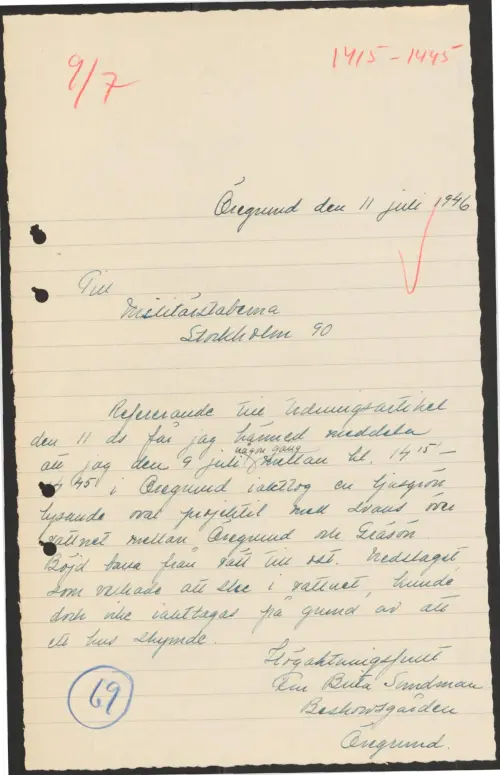 9/7
1415-1445
Öregrund den 11 juli 1946
Till
Militärstaberna
Stockholm 90
Refererande till tidningsartikel
den 11 ds får jag härmed meddela
att jag den 9 juli någon gång mellan kl. 14 15 –
14 45 i Öregrund iakttog en ljusgrön
lysande oval projektil med svans över
vattnet mellan Öregrund och Gräsön.
Böjd bana från väst till ost. Nedslaget
som verkade att ske i vattnet, kunde
dock icke iakttagas på grund av att
ett hus skymde.
Högaktningsfullt
Fru Buta Sundman
Beskowsgården
Öregrund.
69